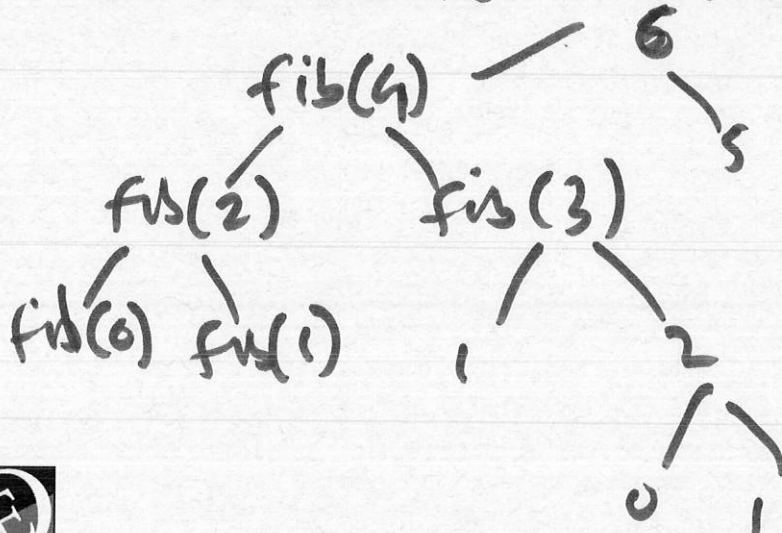 6
fib(4)
5
fib(2) fib(3)
fib(0) fib(1) 1 2
0 1